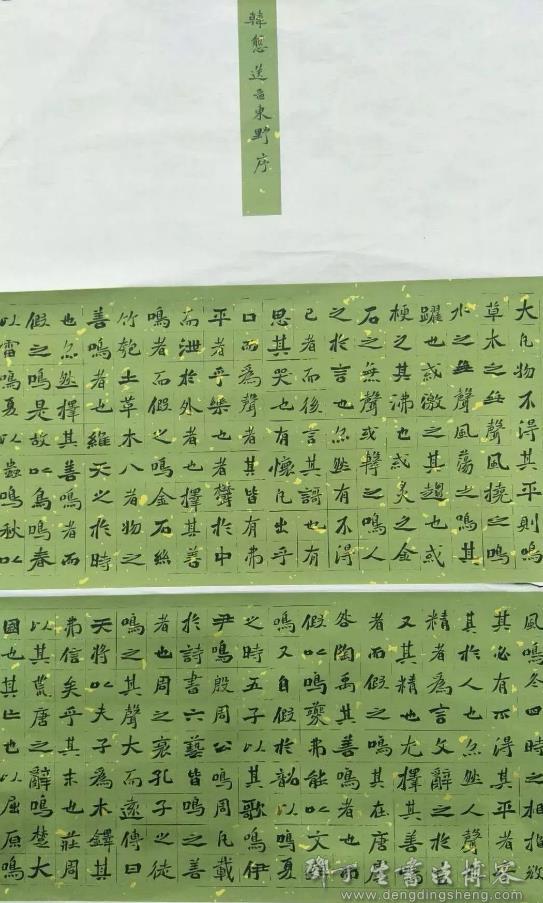 韓愈 送孟東野序
大凡物不得其平則鳴
草木之無聲風撓之鳴
水之無聲風蕩之鳴其
躍也或激之其趨也或
梗之其沸也或炙之金
石之無聲或擊之鳴人
之於言也亦然有不得
已者而後言其謌也有
思其哭也有懷凡出乎
口而為聲者其皆有弗
平者乎樂也者鬱於中
而泄於外者也擇其善
鳴者而假之鳴金石絲
竹匏土草木八者物之
善鳴者也維天之於時
也亦然擇其善鳴者而
假之鳴是故以鳥鳴春
以雷鳴夏以蟲鳴秋以
風鳴冬四時之相推敓
其必有不得其平者
其於人也亦然人聲之
精者為言文辭之於
又其精也尤擇其善
者而假之鳴其在唐
咎陶禹其善鳴者也
假以鳴夔弗能以文
鳴又自假於韶以鳴夏
之時五子以其歌鳴伊
尹鳴殷周公鳴周凡載
於詩書六藝皆鳴之善
者也周之衰孔子之徒
鳴之其聲大而遠傳曰
天將以夫子為木鐸其
弗信矣乎其末也莊周
以其荒唐之辭鳴楚大
國也其亡也以屈原鳴
鄧丁生書法博客
www.dengdingsheng.com